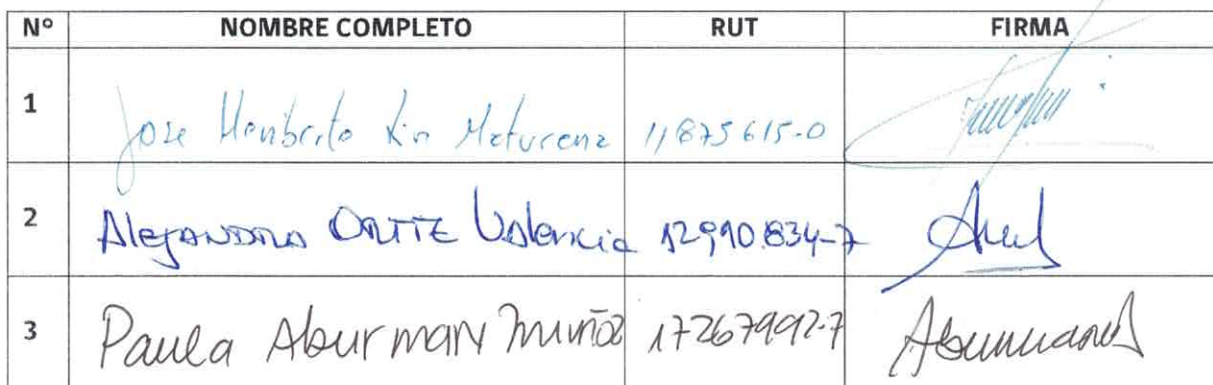 Nº NOMBRE COMPLETO RUT FIRMA
1 Jose Heriberto Lin Maturana 11875615-0
2 Alejandra Valencia 12990.834-7
3 Paula Aburman Muñoz 17267992-7